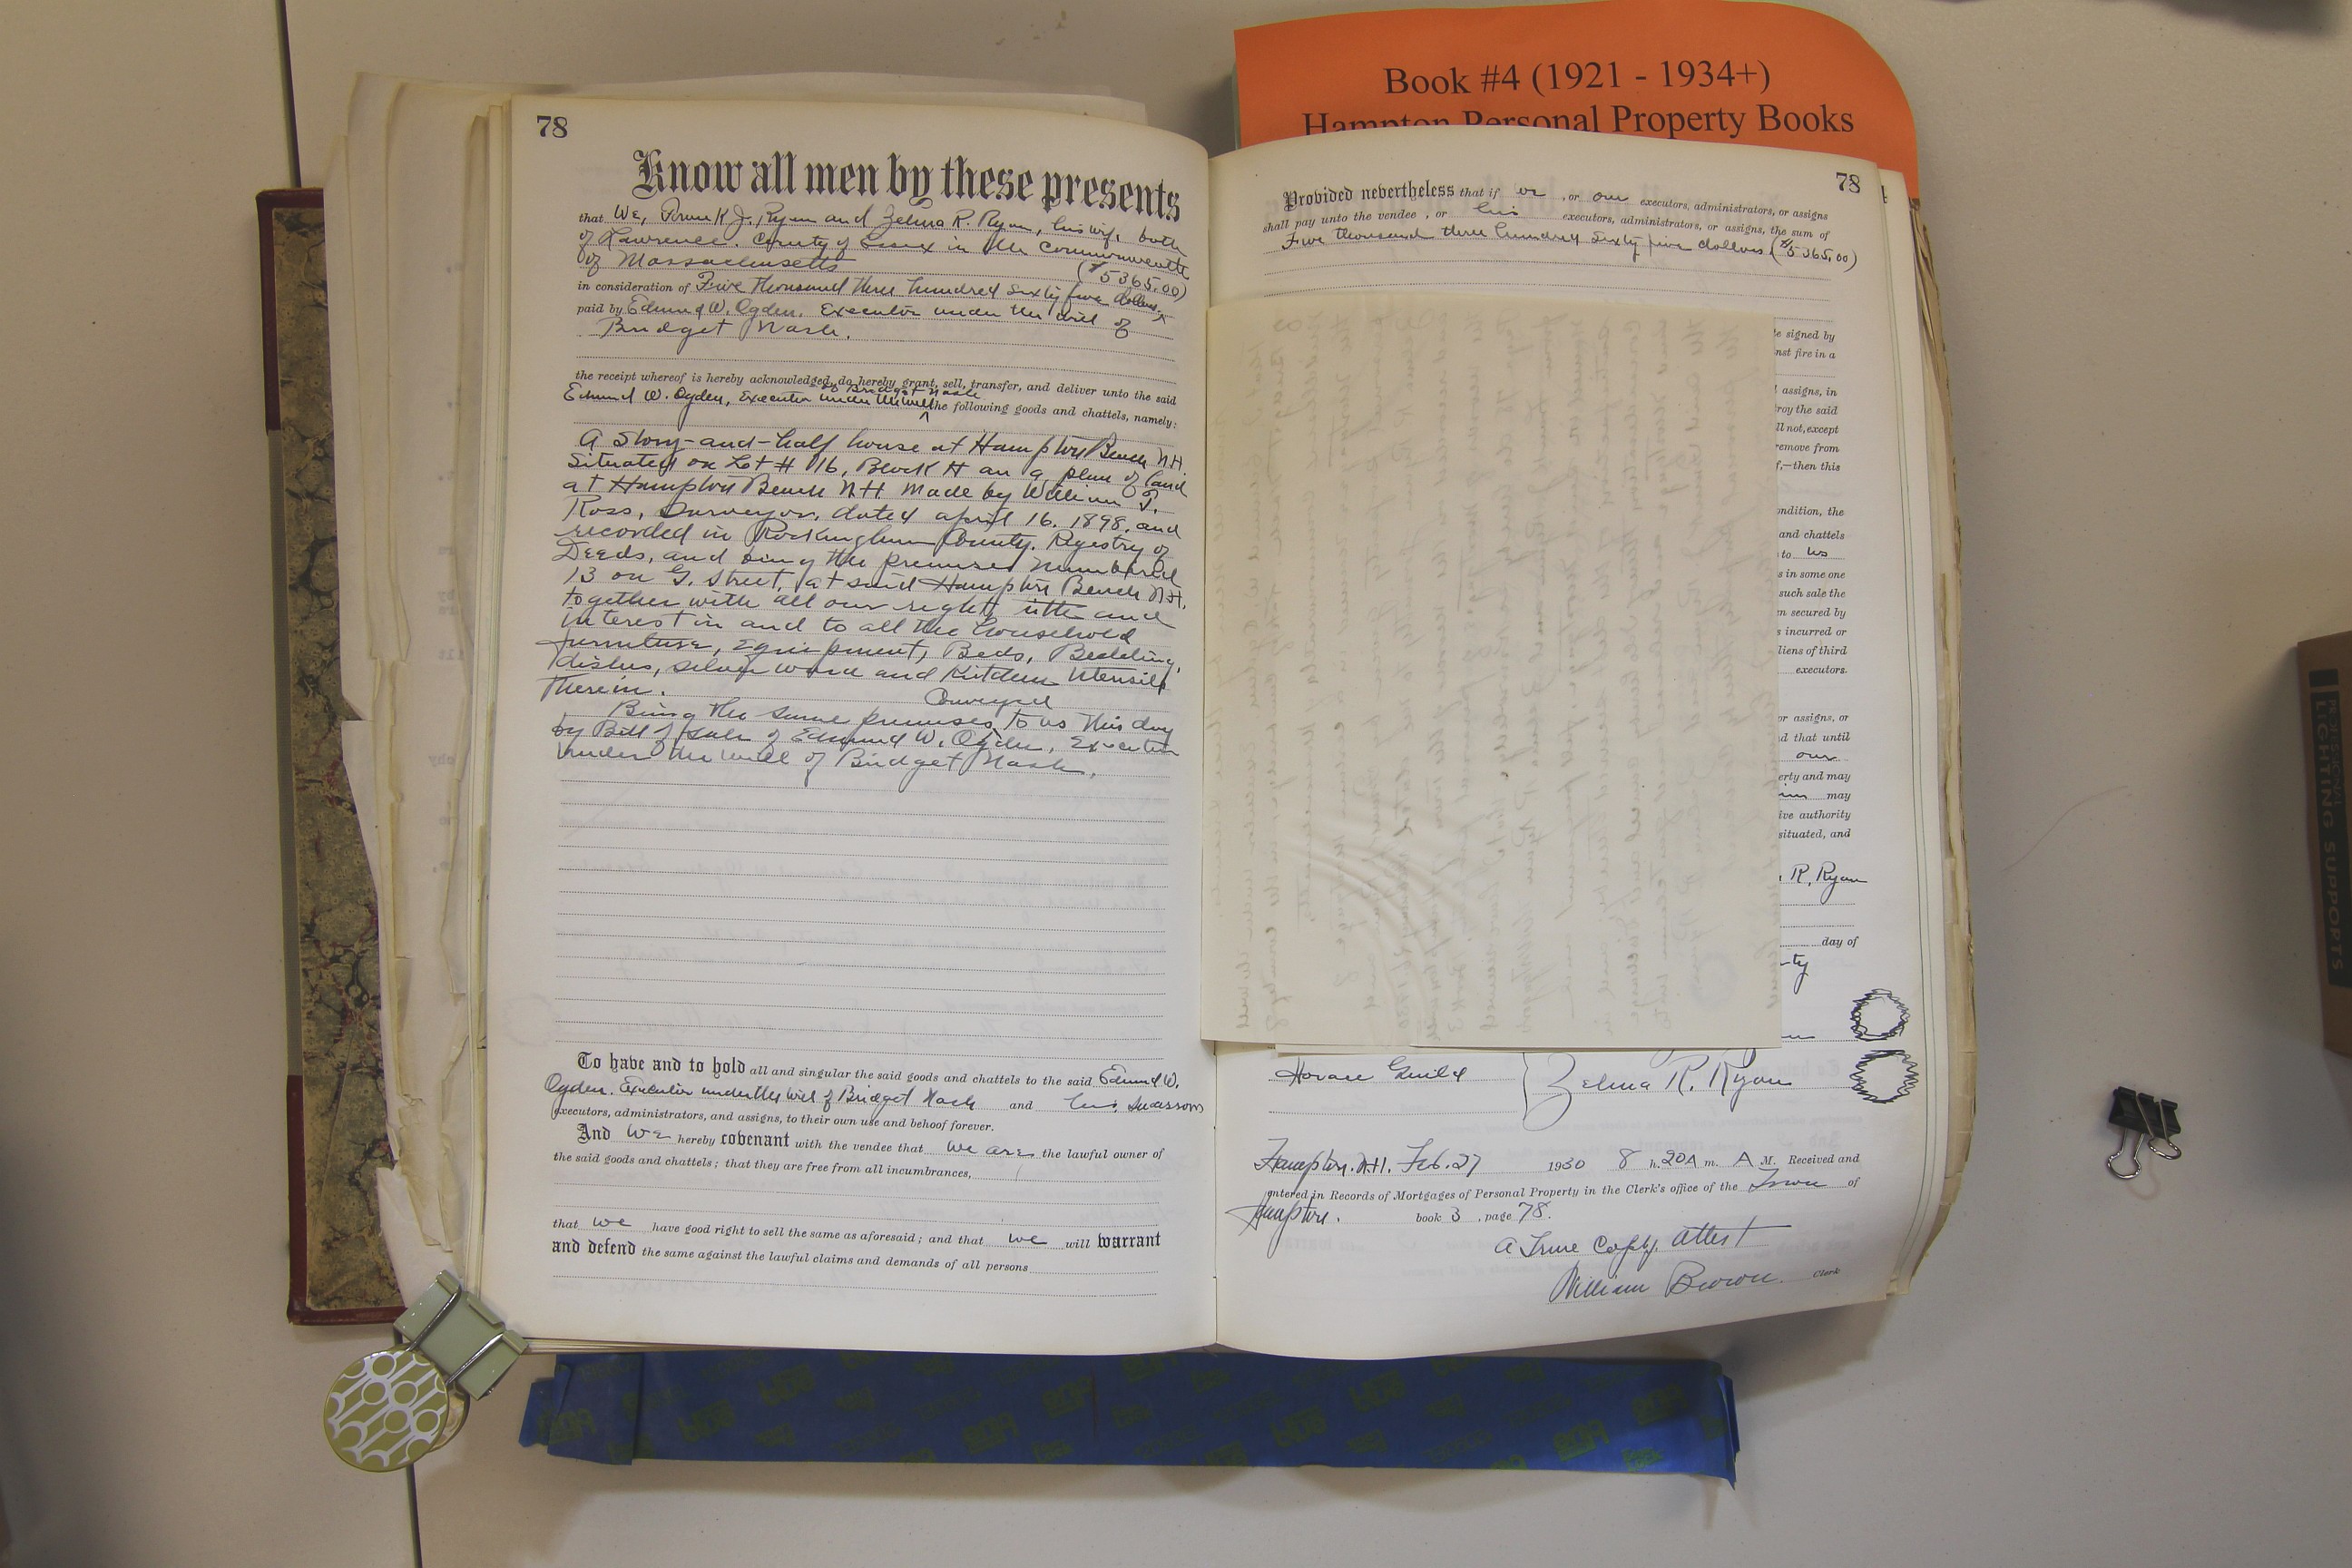 Book #4 (1921 - 1934+)
Hampton Personal Property Books
78
Know all men by these presents
that We, Frank J. Ryan and Zelma R. Ryan, his wife, both
of Lawrence. County of Essex in the Commonwealth
of Massachusetts
($5365.00)
in consideration of Five thousand three hundred sixty five dollars ^
paid by Edmund W. Ogden, Executor under the will of
Bridget Nash.
the receipt whereof is hereby acknowledged, do hereby grant, sell, transfer, and deliver unto the said
of Bridget Nash
Edmund W. Ogden, Executor under the will ^ the following goods and chattels, namely:
A Story-and-half house at Hampton Beach N.H.
Situated on Lot # 116, Block H on a plan of land
at Hampton Beach N.H. Made by William T.
Ross, Surveyor, dated april 16. 1898. and
recorded in Rockingham County. Registry of
Deeds, and being the premises numbered
13 on G. Street, at said Hampton Beach N.H.
together with all our right, title and
interest in and to all the household
furniture, Equipment, Beds, Bedding,
dishes, silver ware and Kitchen Utensils
therein.
Conveyed
Being the same premises, to us this day
by Bill of Sale of Edmund W. Ogden, Executor
under the will of Bridget Nash.
To have and to hold all and singular the said goods and chattels to the said Edmund W.
Ogden. Executor under the will of Bridget Nash and his
executors, administrators, and assigns, to their own use and behoof forever.
And We hereby covenant with the vendee that we are the lawful owner of
the said goods and chattels; that they are free from all incumbrances,
that we have good right to sell the same as aforesaid; and that we will warrant
and defend the same against the lawful claims and demands of all persons
78
Provided nevertheless that if we, or our executors, administrators, or assigns
shall pay unto the vendee, or his executors, administrators, or assigns, the sum of
Five thousand three hundred sixty five dollars ($5365.00)
signed by
fire in a
assigns, in
the said
not, except
remove from
—then this
condition, the
and chattels
to us
s in some one
such sale the
secured by
incurred or
liens of third
executors.
or assigns, or
that until
our
and may
may
authority
situated, and
R. Ryan
day of
Horace Guild
Zelma R. Ryan
Hampton. N.H. Feb. 27 1930 8 h. 20 A m. A M. Received and
entered in Records of Mortgages of Personal Property in the Clerk's office of the Town of
Hampton. book 3, page 78.
A True Copy. Attest
William Brown. Clerk
PROFESSIONAL
LIGHTING SUPPORTS